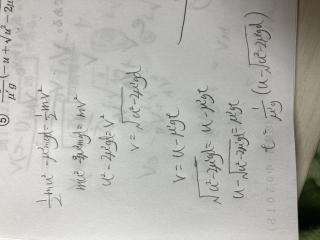 ½mu²-μ'mgl=½mv²
mu²-2μ'mgl=mv²
u²-2μ'gl=v²
v=√(u²-2μ'gl)
v=u-μ'gt
√(u²-2μ'gl)=u-μ'gt
u-√(u²-2μ'gl)=μ'gt
t=1/(μ'g)(u-√(u²-2μ'gl))